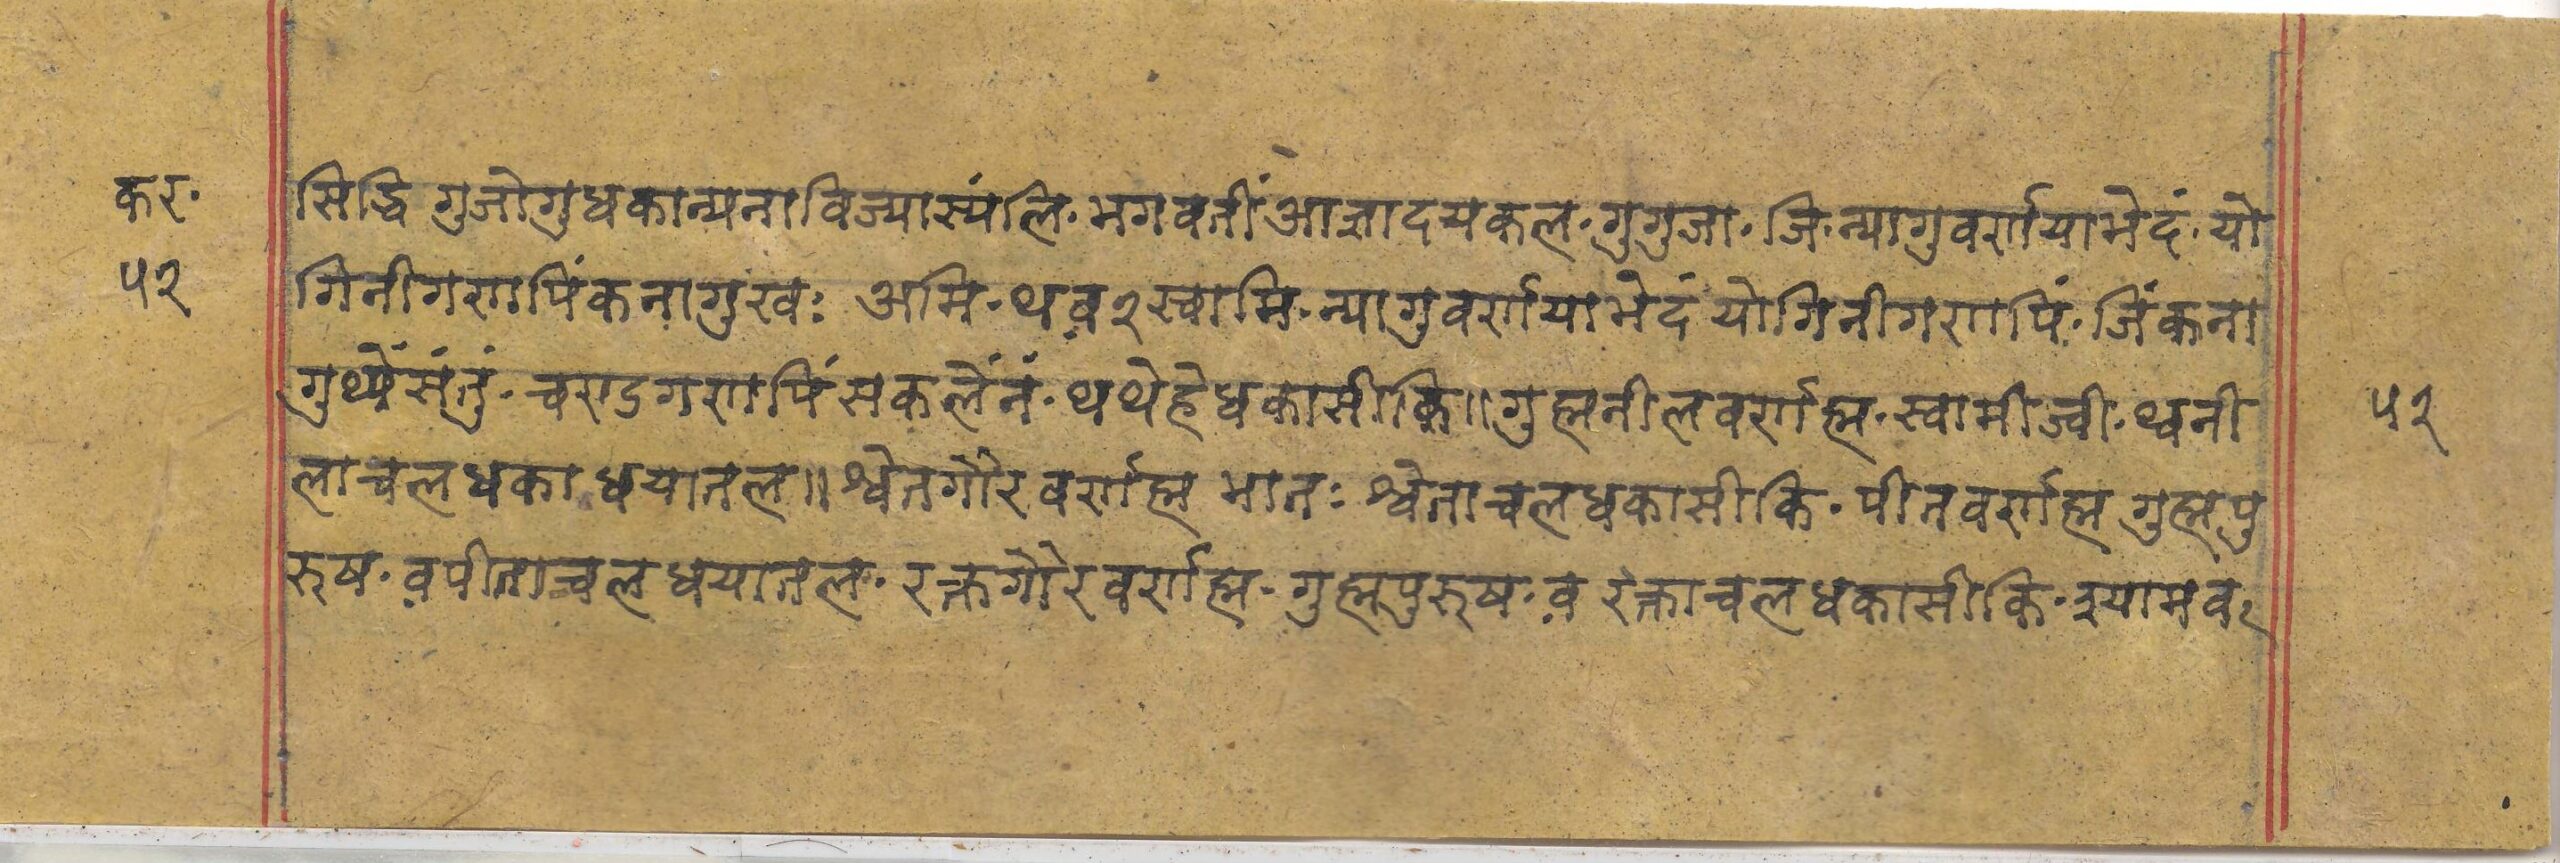 कर.
सिद्धि गुजोगुधकान्यनाविज्यास्यंलि. भगवतीं आज्ञादयकल. गुगुजा. जि. न्यागुवर्णयाभेदं. यो
५२
गिनीगणपिंकनागुखः अमि. थव़२स्वामि. न्यागुवर्णयाभेदं योगिनीगणपिं. जिंकना
गुथ्येंसंतुं. चण्डगणपिं सकलेंनं. थथेहेधकासीकि॥ गुह्मनीलवर्णह्म. स्वामीज्वी. थ्वनी
५२
लाचलधकाधयातल॥ श्वेतगौरवर्णह्म भातः श्वेताचलधकासीकि. पीतवर्णह्म गुह्मपु
रुष. व़पीताचलधयातल. रक्तगौरवर्णह्म. गुह्मपुरुष. व़ रक्ताचलधकासीकि. श्यामव